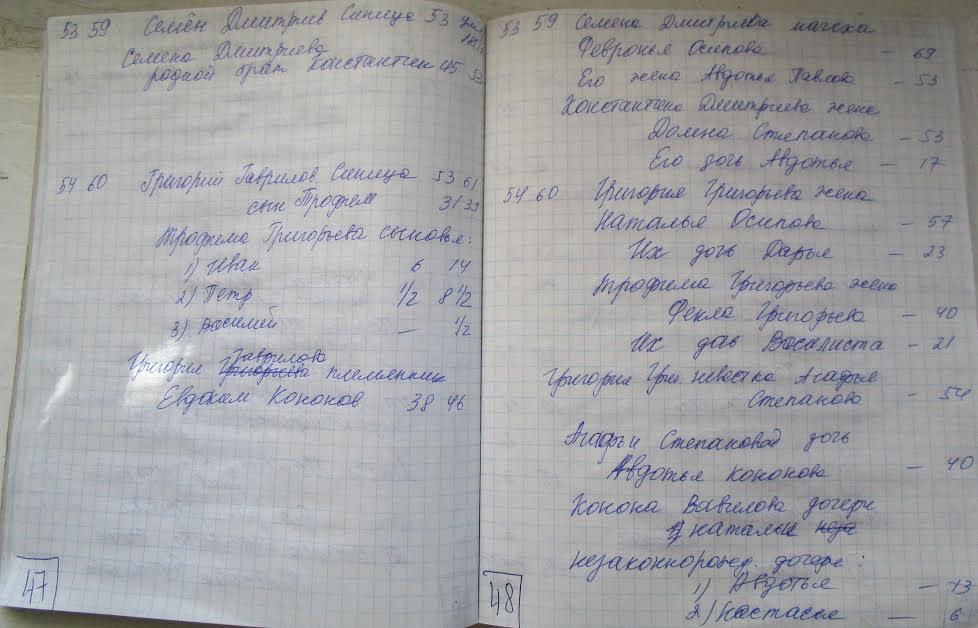 53 59 Семён Дмитриев Синица 53
Семена Дмитриева
родной брат Константин 45 53
54 60 Григорий Гаврилов Синица 53 61
сын Трофим 31 39
Трофима Григорьева сыновья:
1) Иван 6 14
2) Петр 1/2 8 1/2
3) Василий — 1/2
Гаврилова
Григория Григорьева племянник
Евдоким Кононов 38 46
47
53 59 Семена Дмитриева мачеха
Февронья Осипова — 69
Его жена Авдотья Павлова — 53
Константина Дмитриева жена
Домна Степанова — 53
Его дочь Авдотья — 17
54 60 Григория Григорьева жена
Наталья Осипова — 57
Их дочь Дарья — 23
Трофима Григорьева жена
Фекла Григорьева — 40
Их дочь Васалиста — 21
Григория Григ. невестка Агафья
Степанова — 54
Агафьи Степановой дочь
Авдотья Кононова — 40
Конона Вавилова дочери
Натальи
незаконнорожд. дочери:
1) Авдотья — 13
2) Настасья — 6
48